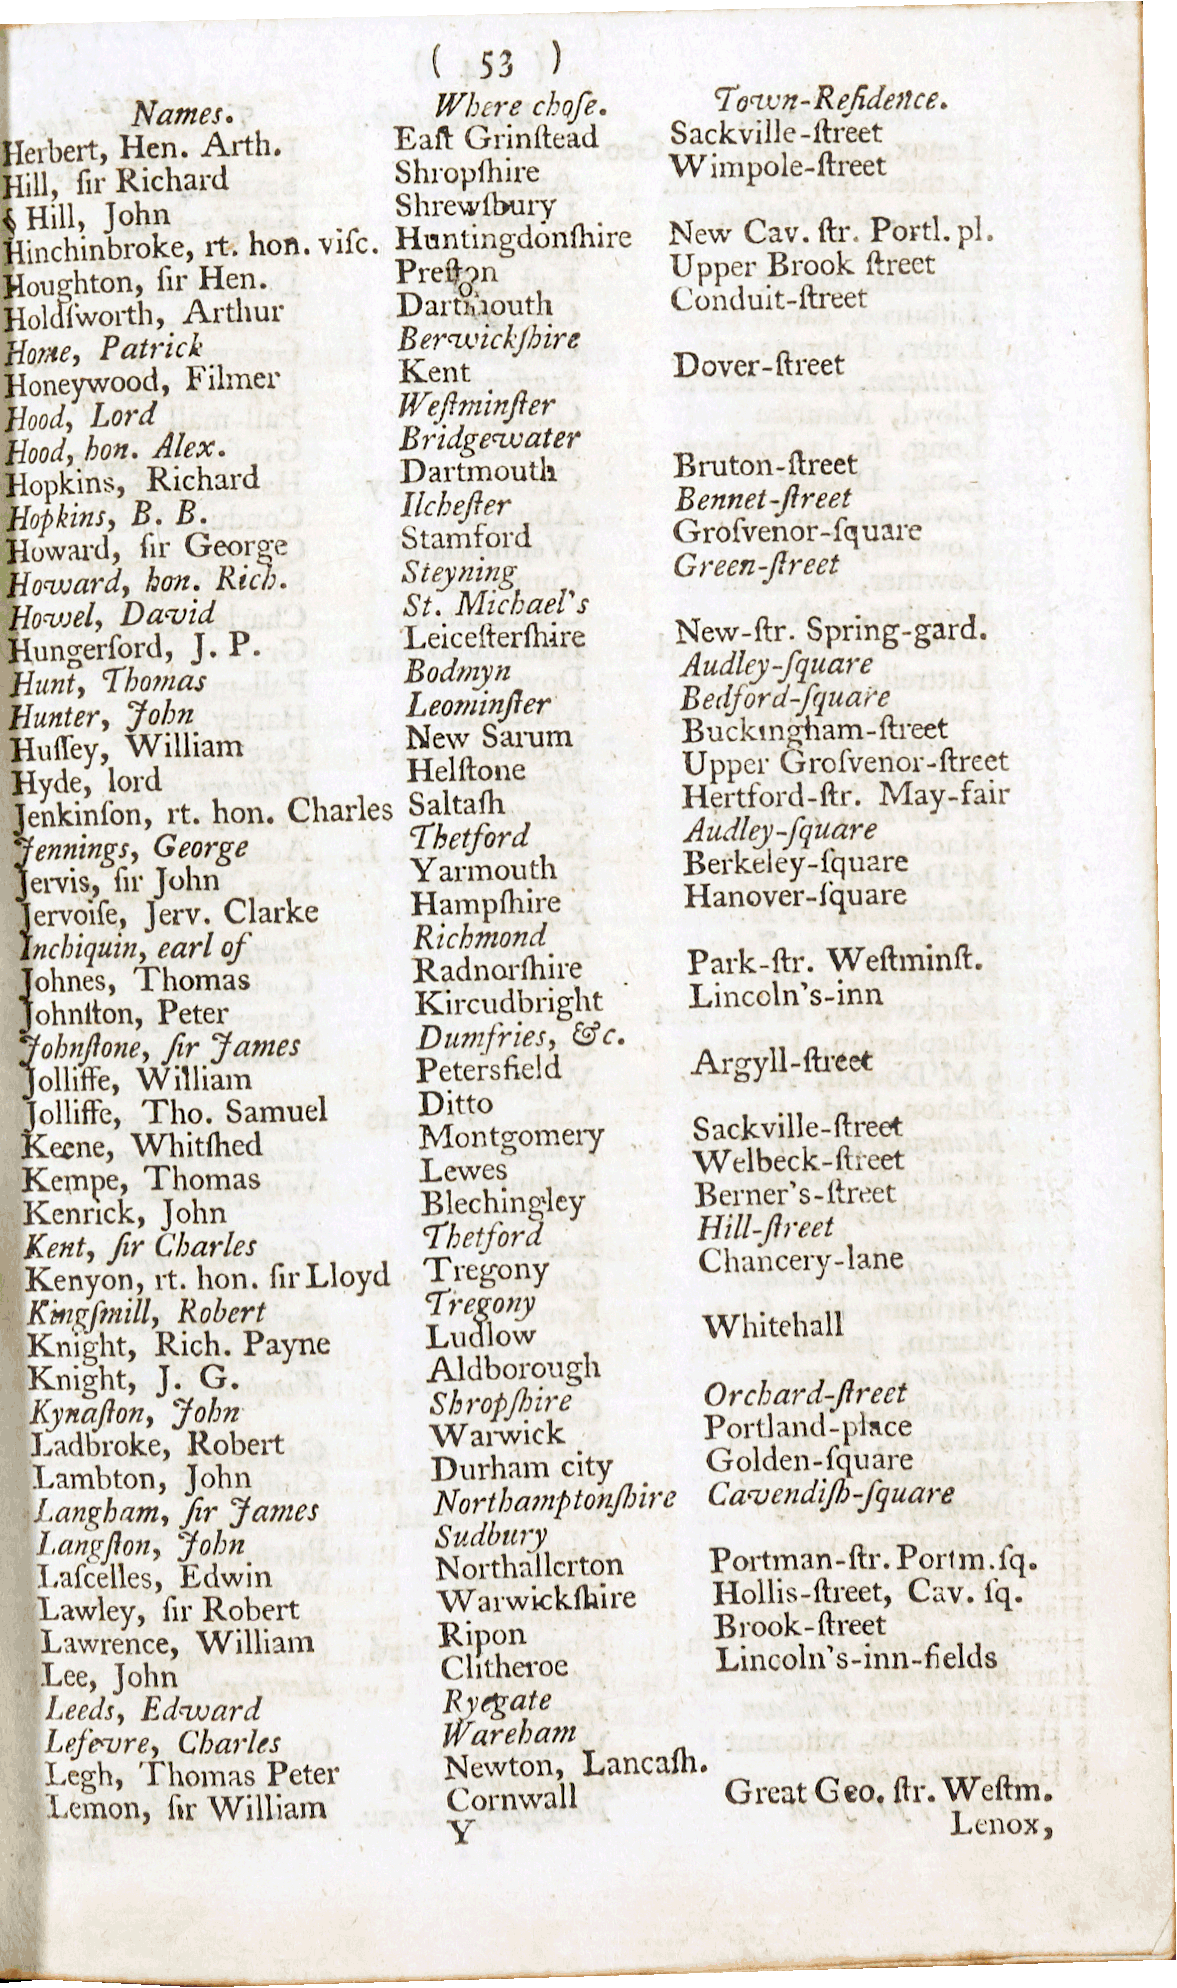 ( 53 )
Names. Where choſe. Town-Reſidence.
Herbert, Hen. Arth. Eaſt Grinſtead Sackville-ſtreet
Hill, ſir Richard Shropſhire Wimpole-ſtreet
§ Hill, John Shrewſbury
Hinchinbroke, rt. hon. viſc. Huntingdonſhire New Cav. ſtr. Portl. pl.
Houghton, ſir Hen. Preſton Upper Brook ſtreet
Holdſworth, Arthur Dartmouth Conduit-ſtreet
Home, Patrick Berwickſhire
Honeywood, Filmer Kent Dover-ſtreet
Hood, Lord Weſtminſter
Hood, hon. Alex. Bridgewater
Hopkins, Richard Dartmouth Bruton-ſtreet
Hopkins, B. B. Ilcheſter Bennet-ſtreet
Howard, ſir George Stamford Groſvenor-ſquare
Howard, hon. Rich. Steyning Green-ſtreet
Howel, David St. Michael's
Hungerford, J. P. Leiceſterſhire New-ſtr. Spring-gard.
Hunt, Thomas Bodmyn Audley-ſquare
Hunter, John Leominſter Bedford-ſquare
Huſſey, William New Sarum Buckingham-ſtreet
Hyde, lord Helſtone Upper Groſvenor-ſtreet
Jenkinſon, rt. hon. Charles Saltaſh Hertford-ſtr. May-fair
Jennings, George Thetford Audley-ſquare
Jervis, ſir John Yarmouth Berkeley-ſquare
Jervoiſe, Jerv. Clarke Hampſhire Hanover-ſquare
Inchiquin, earl of Richmond
Johnes, Thomas Radnorſhire Park-ſtr. Weſtminſt.
Johnſton, Peter Kircudbright Lincoln's-inn
Johnſtone, ſir James Dumfries, &c.
Jolliffe, William Petersfield Argyll-ſtreet
Jolliffe, Tho. Samuel Ditto
Keene, Whitſhed Montgomery Sackville-ſtreet
Kempe, Thomas Lewes Welbeck-ſtreet
Kenrick, John Blechingley Berner's-ſtreet
Kent, ſir Charles Thetford Hill-ſtreet
Kenyon, rt. hon. ſir Lloyd Tregony Chancery-lane
Kingſmill, Robert Tregony
Knight, Rich. Payne Ludlow Whitehall
Knight, J. G. Aldborough
Kynaſton, John Shropſhire Orchard-ſtreet
Ladbroke, Robert Warwick Portland-place
Lambton, John Durham city Golden-ſquare
Langham, ſir James Northamptonſhire Cavendiſh-ſquare
Langſton, John Sudbury
Laſcelles, Edwin Northallerton Portman-ſtr. Portm. ſq.
Lawley, ſir Robert Warwickſhire Hollis-ſtreet, Cav. ſq.
Lawrence, William Ripon Brook-ſtreet
Lee, John Clitheroe Lincoln's-inn-fields
Leeds, Edward Ryegate
Lefevre, Charles Wareham
Legh, Thomas Peter Newton, Lancaſh.
Lemon, ſir William Cornwall Great Geo. ſtr. Weſtm.
Y Lenox,